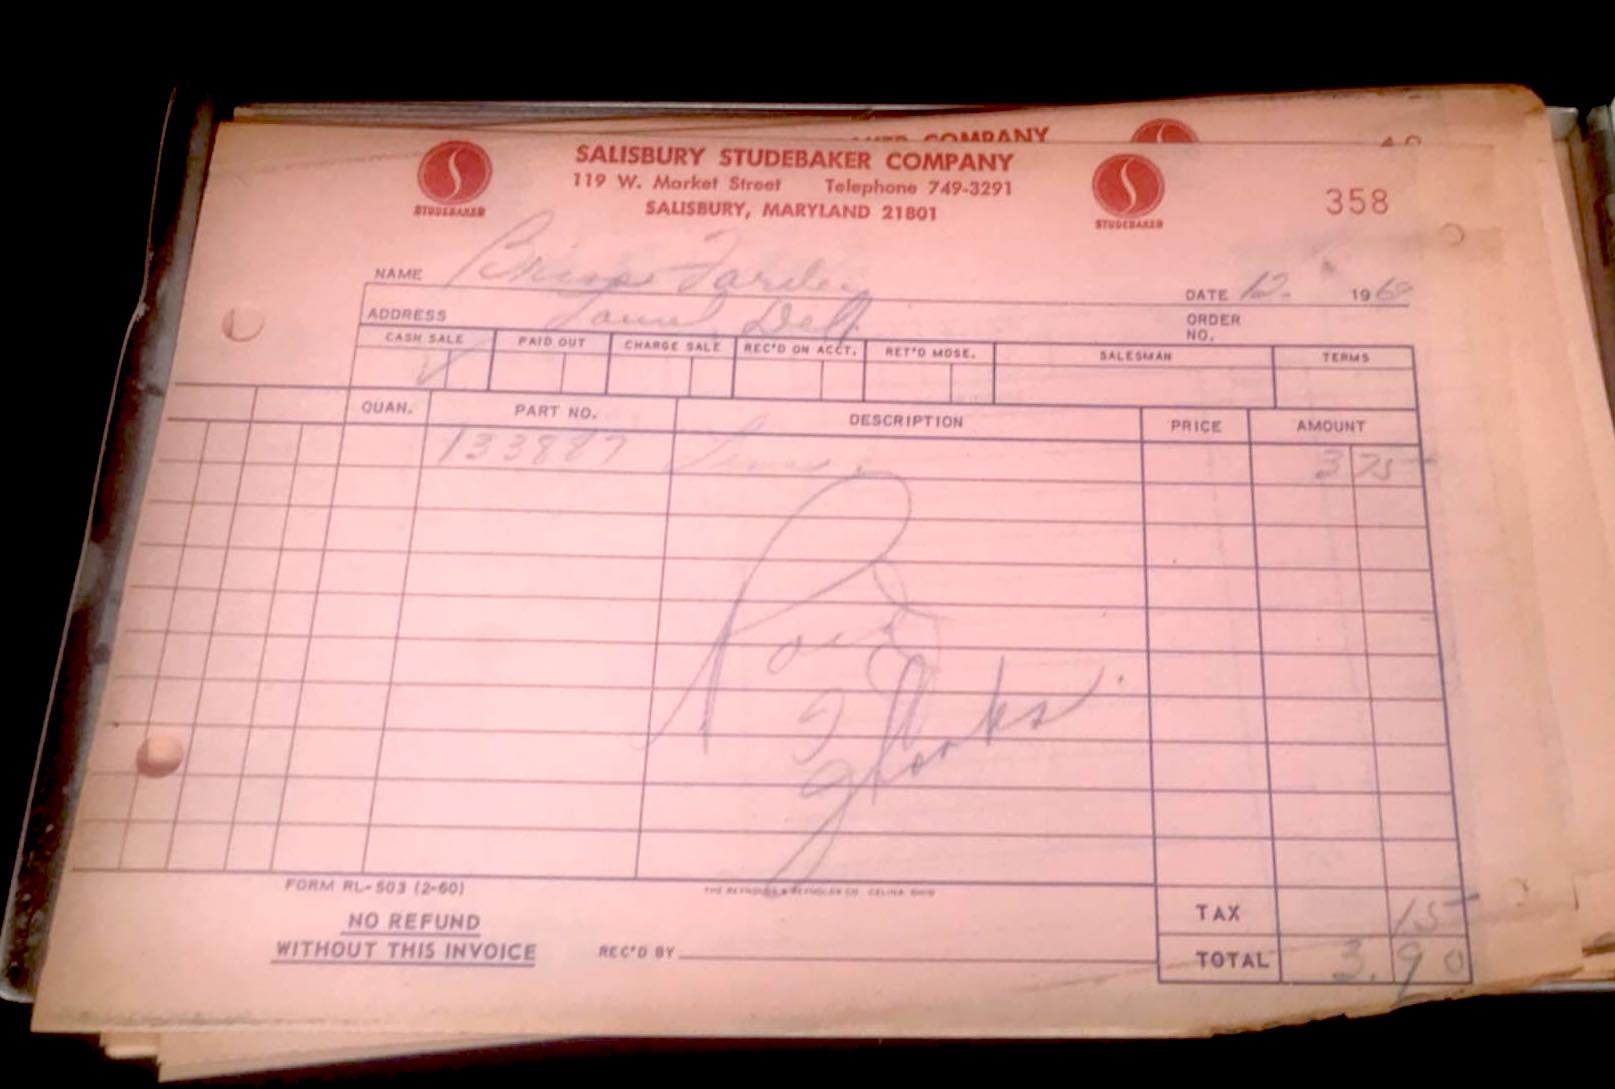 COMPANY
SALISBURY STUDEBAKER COMPANY
119 W. Market Street Telephone 749-3291
SALISBURY, MARYLAND 21801
STUDEBAKER
STUDEBAKER
358
NAME
DATE 12- 1960
ADDRESS Laurel, Dell
ORDER NO.
CASH SALE PAID OUT CHARGE SALE REC'D ON ACCT. RET'D MDSE. SALESMAN TERMS
QUAN. PART NO. DESCRIPTION PRICE AMOUNT
133887 3 75
Paid
Thanks
FORM RL-503 (2-60)
THE REYNOLDS & REYNOLDS CO. CELINA, OHIO
NO REFUND
WITHOUT THIS INVOICE
REC'D BY
TAX 15
TOTAL 3.90